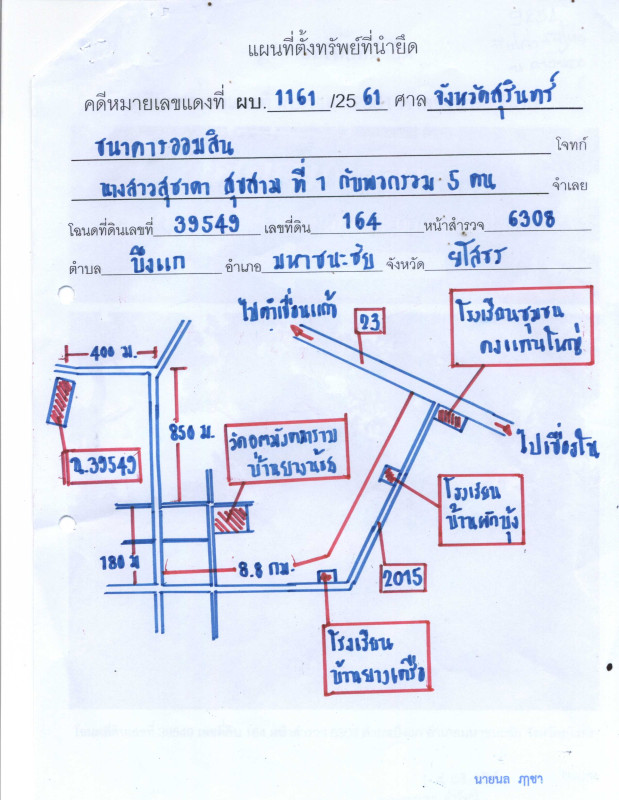 แผนที่ตั้งทรัพย์ที่นำยึด
คดีหมายเลขแดงที่ ผบ. 1161 /25 61 ศาล จังหวัดสุรินทร์
ธนาคารออมสิน โจทก์
นางสาวสุชาดา สุขสาม ที่ 1 กับพวกรวม 5 คน จำเลย
โฉนดที่ดินเลขที่ 39549 เลขที่ดิน 164 หน้าสำรวจ 6308
ตำบล บึงแก อำเภอ มหาชนะชัย จังหวัด ยโสธร
ไปคำเขื่อนแก้ว
23
โรงเรียนชุมชน
ดงแคนใหญ่
400 ม.
850 ม.
ฉ.39549
บ้านยางน้อย
ไปเขื่องใน
โรงเรียน
บ้านผักบุ้ง
180 ม
8.8 กม.
2015
โรงเรียน
บ้านยางเครือ
นายนล